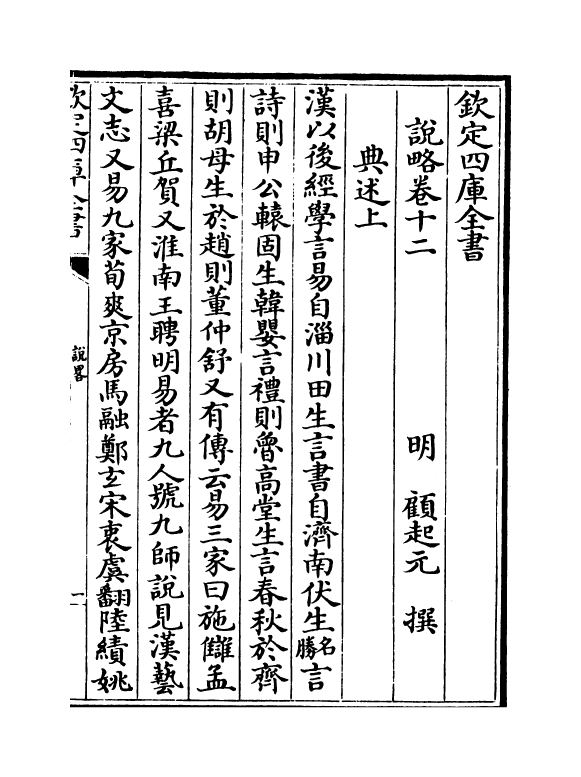 欽定四庫全書
說略卷十二
明 顧起元 撰
典述上
漢以後經學言易自淄川田生言書自濟南伏生名勝言
詩則申公轅固生韓嬰言禮則魯高堂生言春秋於齊
則胡母生於趙則董仲舒又有傳云易三家曰施讎孟
喜梁丘賀又淮南王聘明易者九人號九師說見漢藝
文志又易九家荀爽京房馬融鄭玄宋衷虞翻陸績姚
欽定四庫全書
說畧
一